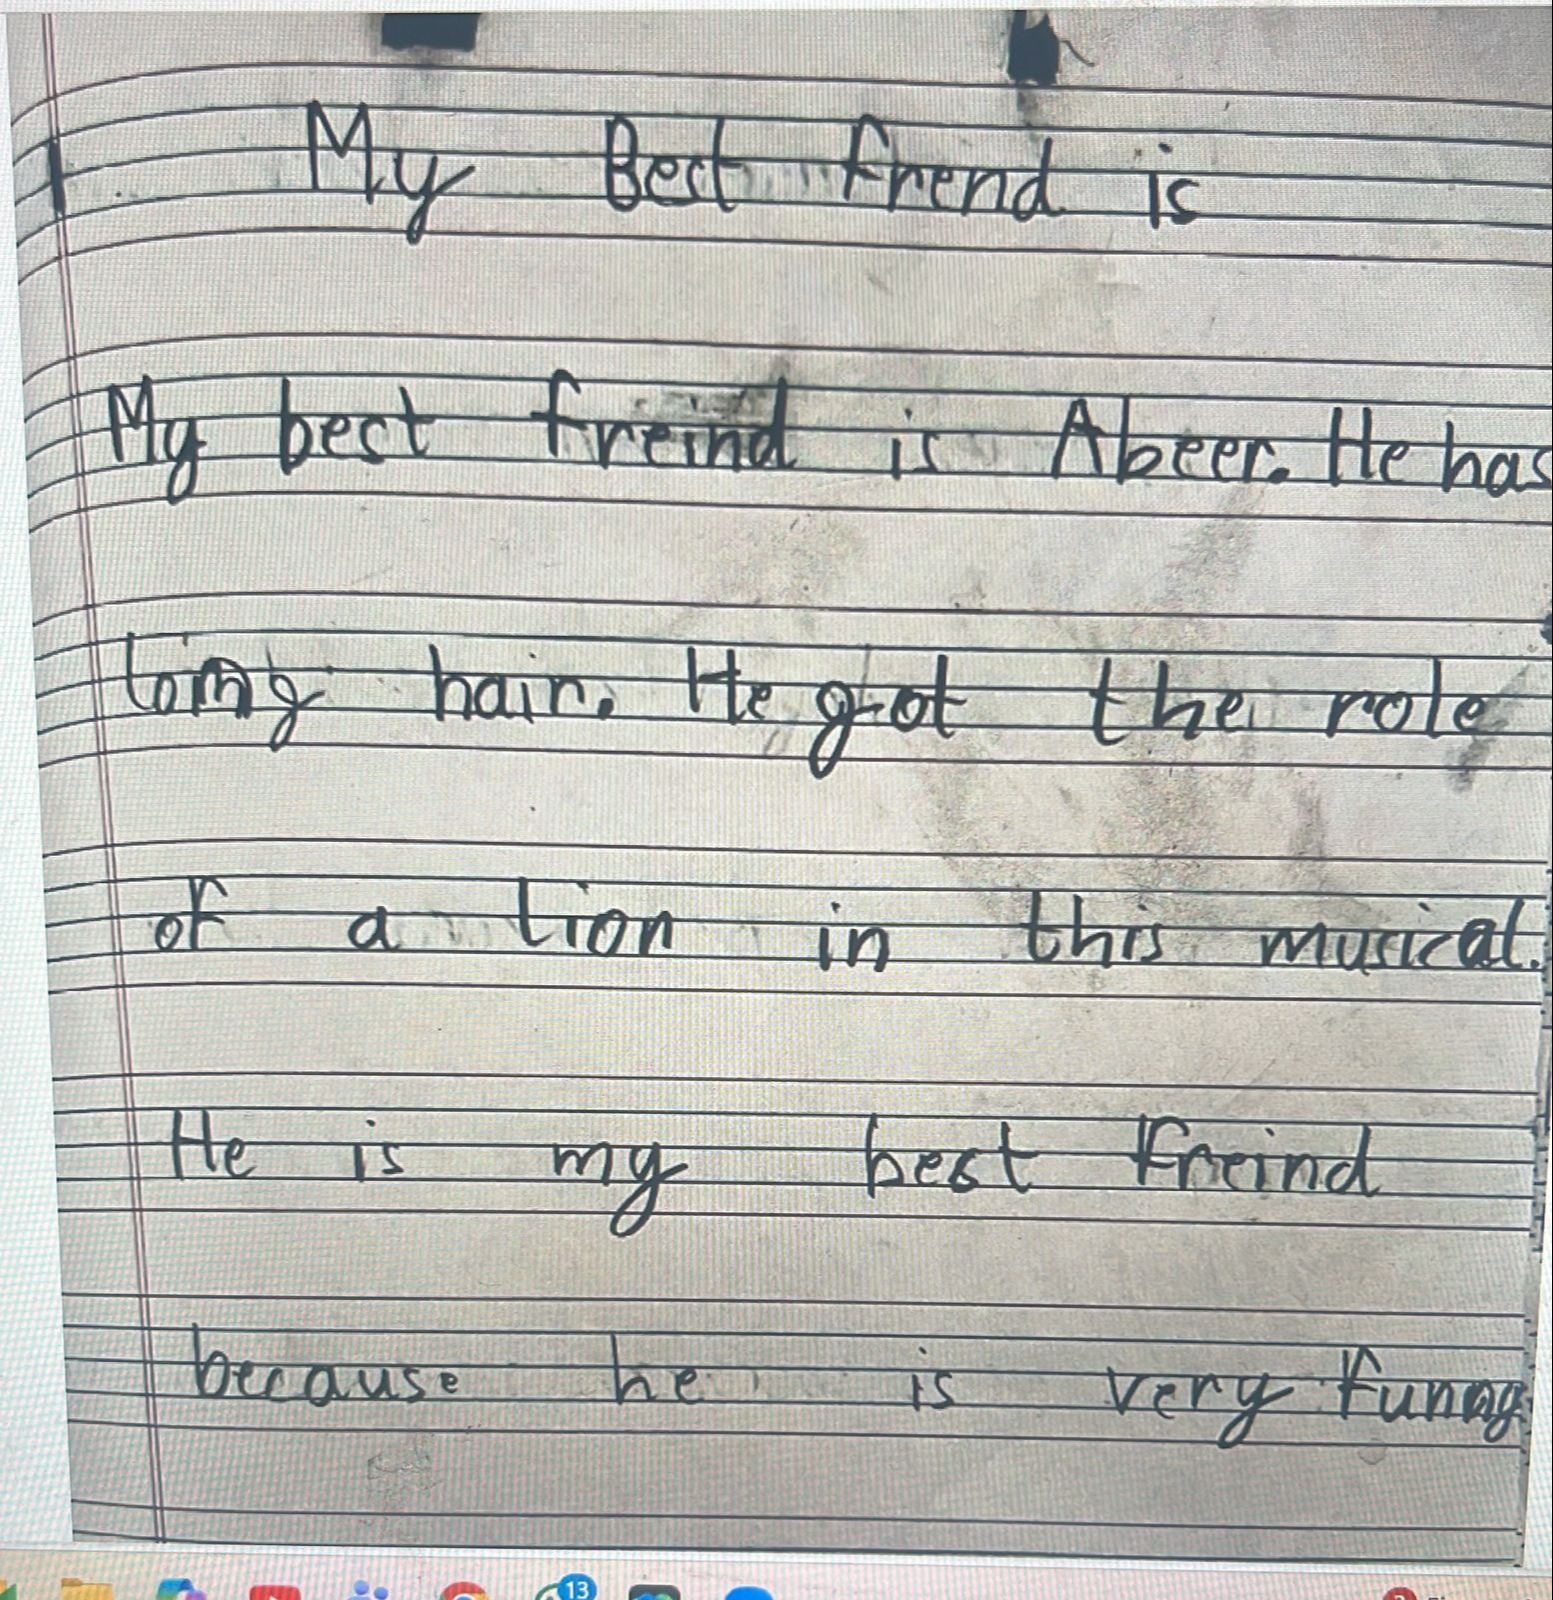 My Best frend is
My best freind is Abeer. He has
long hair. He got the role
of a lion in this musical.
He is my best freind
because he is very funny
13